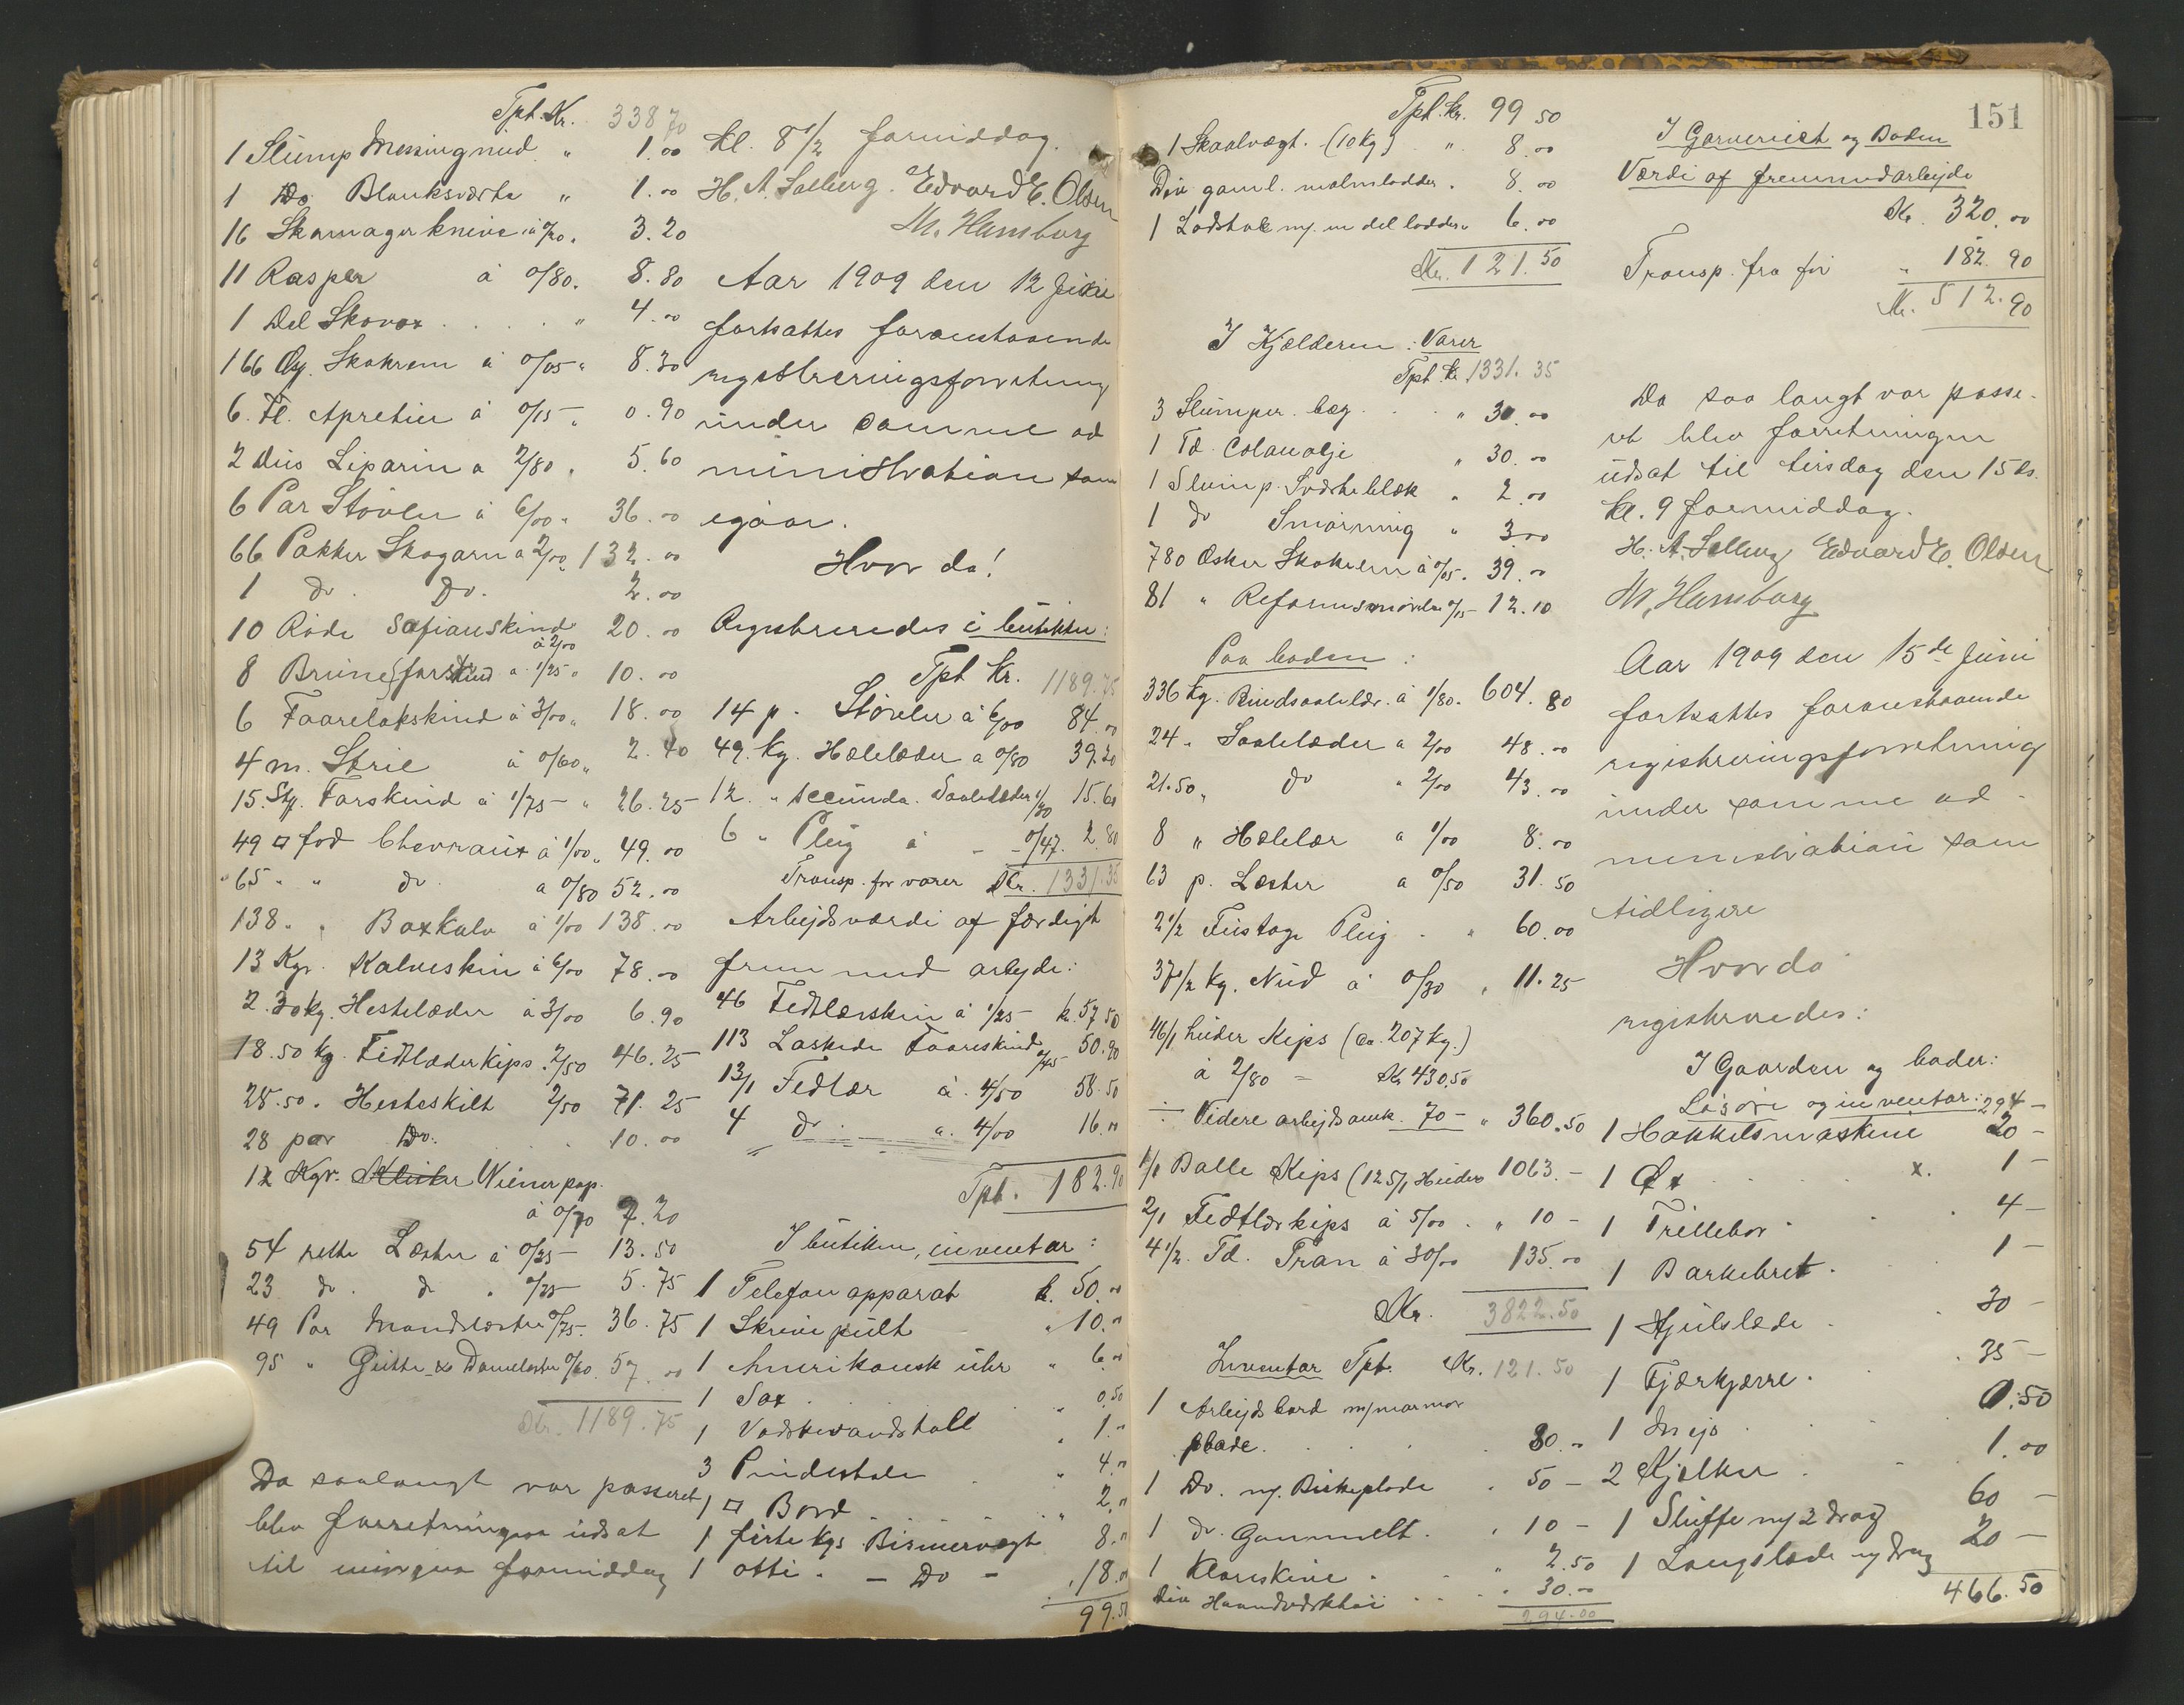 Tpt. Kr. 338.70
1 Slump Messingnud " 1.00
1 Do Blanksværte " 1.00
16 Skomagerknive à 0/20 " 3.20
11 Rasper à 0/80 " 8.80
1 Del Skovox . . . . " 4.00
166 Æsk. Skokrem à 0/05 " 8.30
6. Fl. Apretur à 0/15 " 0.90
2 dus Liparin a 2/80 " 5.60
6 Par Støvler à 6/00 " 36.00
66 Pakker Skogarn a 2/00 " 132.00
1 do. Do. 2.00
10 Røde Safianskind à 2/00 20.00
8 Brune forskind a 1/25 " 10.00
6 Faarelakskind à 3/00 " 18.00
4 m. Strie à 0/60 " 2.40
15. Stk. Forskind à 1/75 - " 26.25
49 □ fod Chevraux à 1/00 " 49.00
"65 " " do. a 0/80 52.00
138 " " Boxkalv à 1/00 138.00
13 Kgr. Kalveskin à 6/00 78.00
2.30 kg. Hestelæder à 3/00 6.90
18.50 kg. Fedtlæderkips. 2/50 46.25
28.50 " Hesteskilt 2/50 71.25
28 par Do. . . 10.00
12 Kgr. Wienerpap.
à 0/70 7.20
54 rette Læster à 0/25 - 13.50
23 do. do " 0/25 - 5.75
49 Par Mandslæster 0/75. 36.75
95 " Gutte & Damelæster 0/60. 57.00
Kr. 1189.75
Da saalangt var passeret
blev forretningen udsat
til imorgen formiddag
Kl. 8 1/2 formiddag.
H. A. Solberg. Edvard E. Olsen
M. Hamborg
Aar 1909 den 12 Juni
fortsattes foranstaaende
registreringsforretning
under samme ad
ministration som
igaar.
Hvor da!
Registreredes i butikken:
Tpt Kr. 1189.75
14 p. Støvler à 6/00 84.00
49. kg. Hælelæder a 0/80 39.20
12. " secunda. Saalelæder 1/30 15.60
6 " Pleig à - - 0/47. 2.80
Transp. for varer Kr. 1331.35
Arbejdsværdi af færdigt
fremmed arbejde:
46 Fedtlærskin à 1/25 - kr. 57.50
113 Laskede Faareskind 0/45 50.90
13/1 Fedtlær à. 4/50 58.50
4 do. a. 4/00 16.00
Tpt. 182.90
I butiken, inventar:
1 Telefonapparat k. 50.00
1 Skrivepult " 10.00
1 Amerikansk uhr " 6.00
1 Sax . . . " 0.50
1 Vadskevandstoll " 1.00
3 Pindestole " 4.00
1 □ Bord . . . " 2.00
1 firti kgs Bismervægt 8.00
1 otti " - Do - " 18.00
99.50
Tpt. kr. 99.50
1 Skaalvægt. (10 kg) " 8.00
Div. gaml. malmlodder " 8.00
1 Lodstok m/ en del lodder " 6.00
Kr. 121.50
I Kjælderen: Varer
Tpt. Kr. 1331.35
3 Slumper. beg . . " 30.00
1 Td. Colanolje " 30.00
1 Slump. Sværteblæk " 2.00
1 do Smørning " 3.00
780 Æsker Skokrem à 0/05. 39.00
81 " Reformsmørelse 0/15 - 12.10
Paa boden:
336 kg. Bindsaalelær. à 1/80. 604.80
24 " Saalelæder a 2/00 48.00
21.50 " do " 2/00 43.00
8 " Hælelær a 1/00 8.00
63 p. Læster a 0/50 31.50
2 1/2 Fustage Pleig . " 60.00
37 1/2 kg. Nud à 0/30 " 11.25
46/1 huder Kips (ca. 207 kg.)
à 2/80 = Kr 430.50
÷ Videre arbejds omk. 70 - " 360.50
1/1 Balle Kips (125/1 Huder 1063. -
2/1 Fedtlærkips à 5/00 . " 10 -
4 1/2. Td. Tran à 30/00 135.00
Kr. 3822.50
Inventar Tpt. Kr. 121.50
1 Arbejdsbord m/marmor
plade. . . . 80.00
1 Do. m/. Birkeplade . 50 -
1 do. Gammelt . " 10 -
1 Klareskive . " 2.50
Div Haandværktøi . . . 30.00
294.00
151
I Garveriet og Boden
Værdi af fremmedarbejde
Kr. 320.00
Transp. fra før " 182.90
Kr. 512.90
Da saa langt var passe-
ret blev forretningen
udsat til tirsdag den 15 ds.
kl. 9 formiddag.
H. A. Solberg Edvard E. Olsen
M. Hamborg
Aar 1909 den 15de Juni
fortsattes foranstaaende
registreringsforretning
under samme ad-
ministration som
tidligere
Hvor da
registreredes:
I Gaarden og boder:
Løsøre og inventar: 294 -
1 Hakkelsmaskine 20 -
1 Øx . . . x. 1 -
1 Trillebor . . . 4 -
1 Barkebret . . . 1 -
1 Hjulslæde . . 30 -
1 Fjærkjærre . . 35 -
1 Meis . . . 0.50
2 Kjelker . . 1.00
1 Sluffe m/ 2 drag 60 -
1 Langslæde m/ drag 20 -
466.50